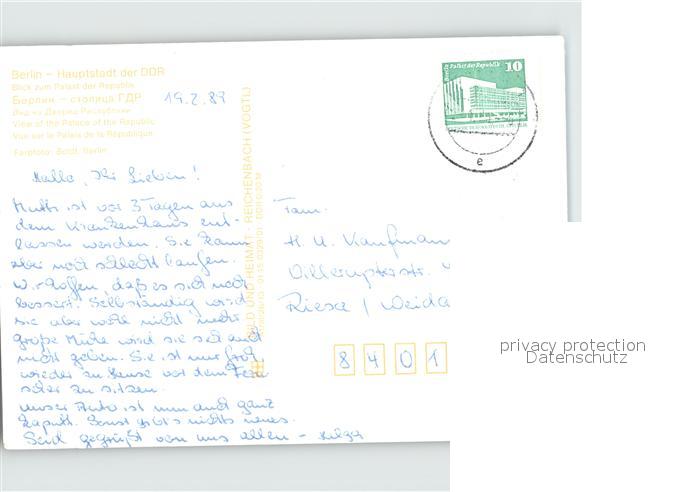 Berlin – Hauptstadt der DDR
Blick zum Palast der Republik
Берлин – столица ГДР
Вид на Дворец Республики
View of the Palace of the Republic
Vue sur le Palais de la République
Farbfoto: Boldt, Berlin
19.2.89
Berlin Palast der Republik
10
e
Hallo, Ihr Lieben!
Mutti ist vor 3 Tagen aus
dem Krankenhaus ent-
lassen worden. Sie kann
aber noch schlecht laufen.
Wir hoffen, daß es sich noch
bessert. Selbständig wird
sie aber wohl nicht mehr
große Mühe wird sie
nicht gehen. Sie ist nur froh,
wieder zu Hause vor dem Fern
seher zu sitzen.
Unser Auto ist nun auch ganz
kaputt. Sonst gibt's nichts neues.
Seid gegrüßt von uns allen – Helga
BILD UND HEIMAT · REICHENBACH (VOGTL)
Fam.
H. U. Kaufman
Riesa / Weida
8 4 0 1
privacy protection
Datenschutz